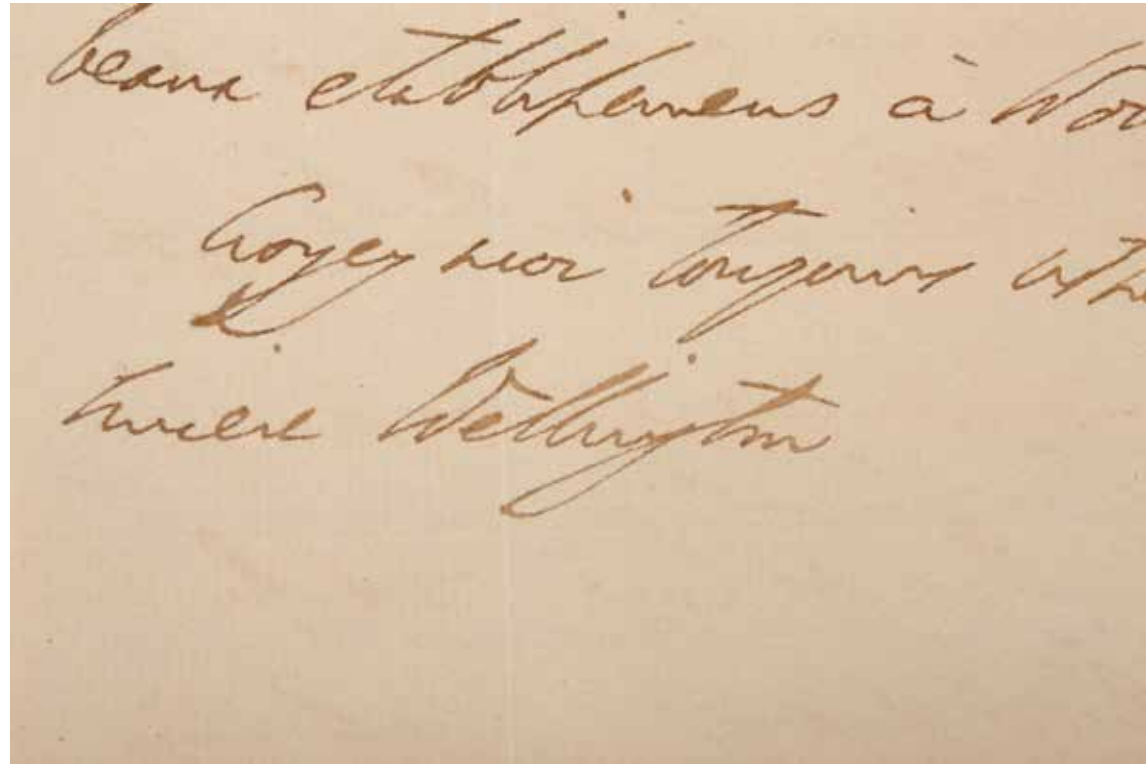 beaux etablissemens à Wo
Croyez moi toujours votre
sincere Wellington